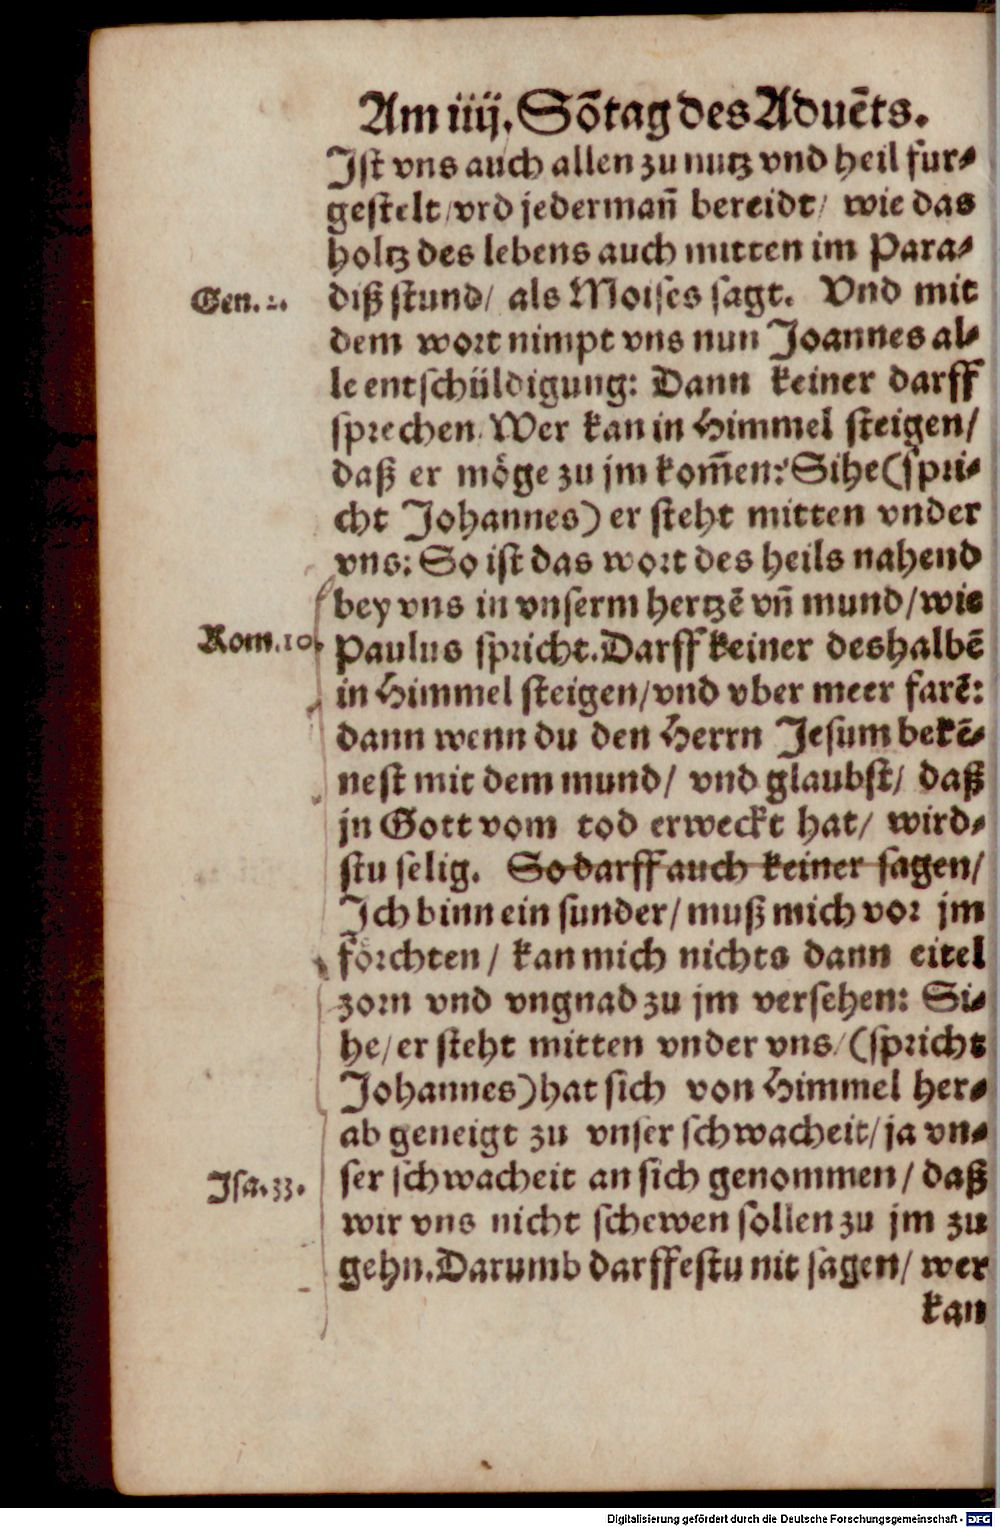 Am iiij. Sõtag des Aduẽts.
Ist vns auch allen zu nutz vnd heil fur⸗
gestelt/vnd jedermañ bereidt/ wie das
holtz des lebens auch mitten im Para⸗
Gen. 2. diß stund/ als Moises sagt. Vnd mit
dem wort nimpt vns nun Joannes al⸗
le entschüldigung: Dann keiner darff
sprechen. Wer kan in Himmel steigen/
daß er möge zu jm kom̃en: Sihe (spri⸗
cht Johannes) er steht mitten vnder
vns: So ist das wort des heils nahend
bey vns in vnserm hertzẽ vñ mund/wie
Rom. 10. Paulus spricht. Darff keiner deshalbẽ
in Himmel steigen/vnd vber meer farẽ:
dann wenn du den Herrn Jesum bekẽ⸗
nest mit dem mund/ vnd glaubst/ daß
jn Gott vom tod erweckt hat/ wird⸗
stu selig. So darff auch keiner sagen/
Ich binn ein sunder/muß mich vor jm
förchten/ kan mich nichts dann eitel
zorn vnd vngnad zu jm versehen: Si⸗
he/er steht mitten vnder vns/(spricht
Johannes) hat sich von Himmel her⸗
ab geneigt zu vnser schwacheit/ja vn⸗
Isa. 33. ser schwacheit an sich genommen/ daß
wir vns nicht schewen sollen zu jm zu
gehn. Darumb darffestu nit sagen/ wer
kan
Digitalisierung gefördert durch die Deutsche Forschungsgemeinschaft - DFG